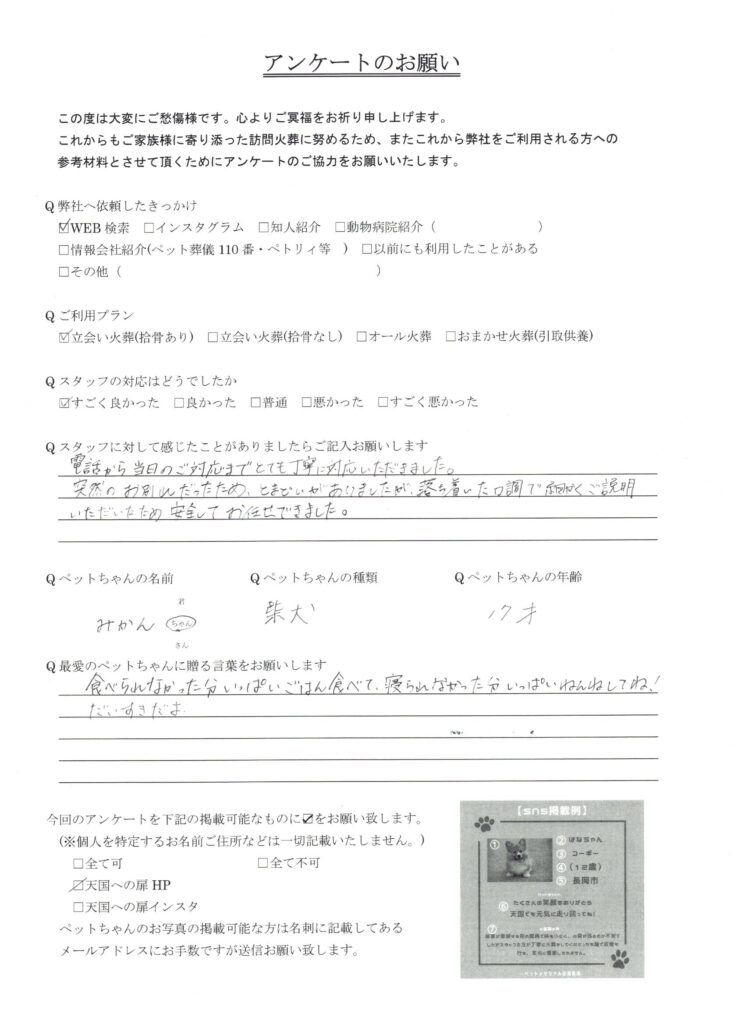 アンケートのお願い
この度は大変にご愁傷様です。心よりご冥福をお祈り申し上げます。
これからもご家族様に寄り添った訪問火葬に努めるため、またこれから弊社をご利用される方への
参考材料とさせて頂くためにアンケートのご協力をお願いいたします。
Q 弊社へ依頼したきっかけ
☑WEB 検索 □インスタグラム □知人紹介 □動物病院紹介（ ）
□情報会社紹介(ペット葬儀 110 番・ペトリィ等 ) □以前にも利用したことがある
□その他（ ）
Q ご利用プラン
☑立会い火葬(拾骨あり) □立会い火葬(拾骨なし) □オール火葬 □おまかせ火葬(引取供養)
Q スタッフの対応はどうでしたか
☑すごく良かった □良かった □普通 □悪かった □すごく悪かった
Q スタッフに対して感じたことがありましたらご記入お願いします
電話から当日のご対応までとても丁寧に対応いただきました。
突然のお別れだったため、とまどいがありましたが、落ち着いた口調で細かくご説明
いただいたため安心してお任せできました。
Q ペットちゃんの名前 Q ペットちゃんの種類 Q ペットちゃんの年齢
君
みかん ちゃん 柴犬 才
さん
Q 最愛のペットちゃんに贈る言葉をお願いします
食べられなかった分いっぱいごはん食べて、寝られなかった分いっぱいねんねしてね!
だいすきだよ
今回のアンケートを下記の掲載可能なものに☑をお願い致します。
(※個人を特定するお名前ご住所などは一切記載いたしません。)
□全て可 □全て不可
☑天国への扉 HP
□天国への扉インスタ
ペットちゃんのお写真の掲載可能な方は名刺に記載してある
メールアドレスにお手数ですが送信お願い致します。
【sns掲載例】
①
② はなちゃん
③ コーギー
④ (12歳)
⑤ 長岡市
⑥ たくさんの笑顔をありがとう
天国でも元気に走り回ってね!
⑦